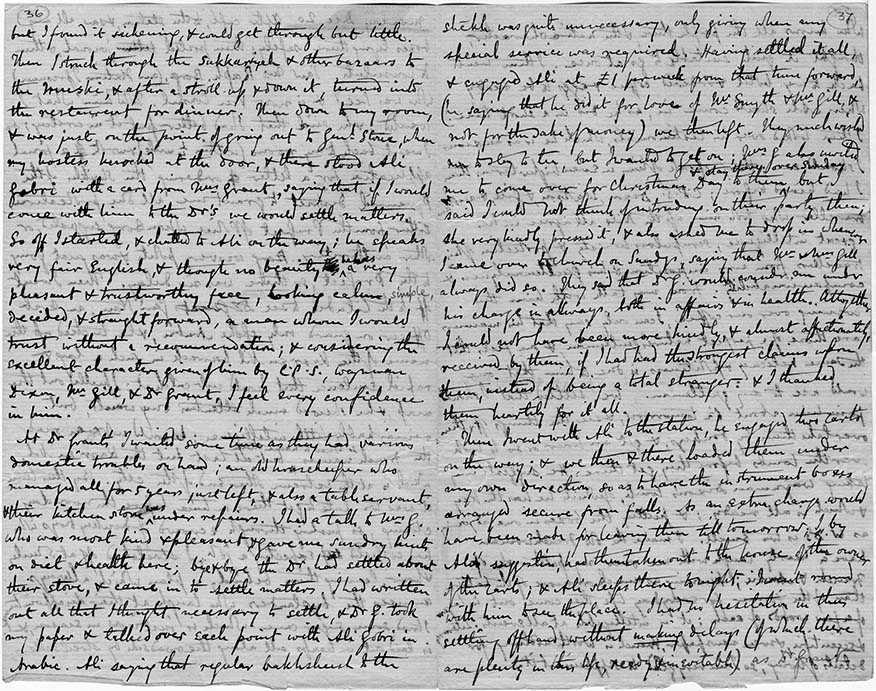 36
but I found it sickening, & could get through but little.
Then I struck through the Sukkariyeh & other bazaars to
the Mouski, & after a stroll up & down it, turned into
the restaurent for dinner. Then down to my room,
& was just on the point of going out to Genl. Stone, when
my hostess knocked at the door, & there stood Ali
Gabri with a card from Mrs Grant, saying that if I would
come with him to the Dr's we would settle matters.
So off I started, & chatted to Ali on the way; he speaks
very fair English, & though no beauty he has a very
pleasant & trustworthy face, looking calm, simple,
decided, & straightforward, a man whom I would
trust without a recommendation; & considering the
excellent characters given of him by C.P.S., Wayman
Dixon, Mr Gill, & Dr Grant, I feel every confidence
in him.
At Dr Grants I waited some time as they had various
domestic troubles on hand; an old housekeeper who
managed all for 5 years just left, & also a table servant,
& their kitchen stove was under repairs. I had a talk to Mrs G.
who was most kind & pleasant & gave me sundry hints
on diet & health here; bye & bye the Dr had settled about
their stove, & came in to settle matters. I had written
out all that I thought necessary to settle, & Dr G. took
my paper & talked over each point with Ali Gabri in
Arabic. Ali saying that regular bakhsheesh to the
37
sheikh was quite unnecessary, only giving when any
special service was required. Having settled it all,
& engaged Ali at £1 per week from that time forward,
(he saying that he did it for love of Mr Smyth & Mr Gill, &
not for the sake of money) we then left. They much wished
me to stay to tea but I wanted to get on; Mrs G also invited
& stay over Sunday
me to come over for Christmas Day to them, but I
said I could not think of intruding on their party then;
she very kindly pressed it, & also asked me to drop in whenever
I came over to church on Sundays, saying that Mr & Mrs Gill
always did so. They said that Dr G. would consider me under
his charge in always, both in affairs & in health. Altogether
I could not have been more kindly, & almost affectionately,
received by them, if I had had the strongest claims upon
them, instead of being a total stranger: & I thanked
them heartily for it all.
Then I went with Ali to the station, he engaged two carts
on the way; & we then & there loaded them under
my own direction, so as to have the instrument boxes
arranged secure from falls. As an extra charge would
have been made for leaving them till tomorrow, I, by
Ali's suggestion, had them taken out to the house of the owner
of the carts; & Ali sleeps there tonight. I went round
with him to see the place. I had no hesitation in thus
settling offhand, without making delays (of which there
are plenty in this life, needy & inevitable) as Dr Grant's